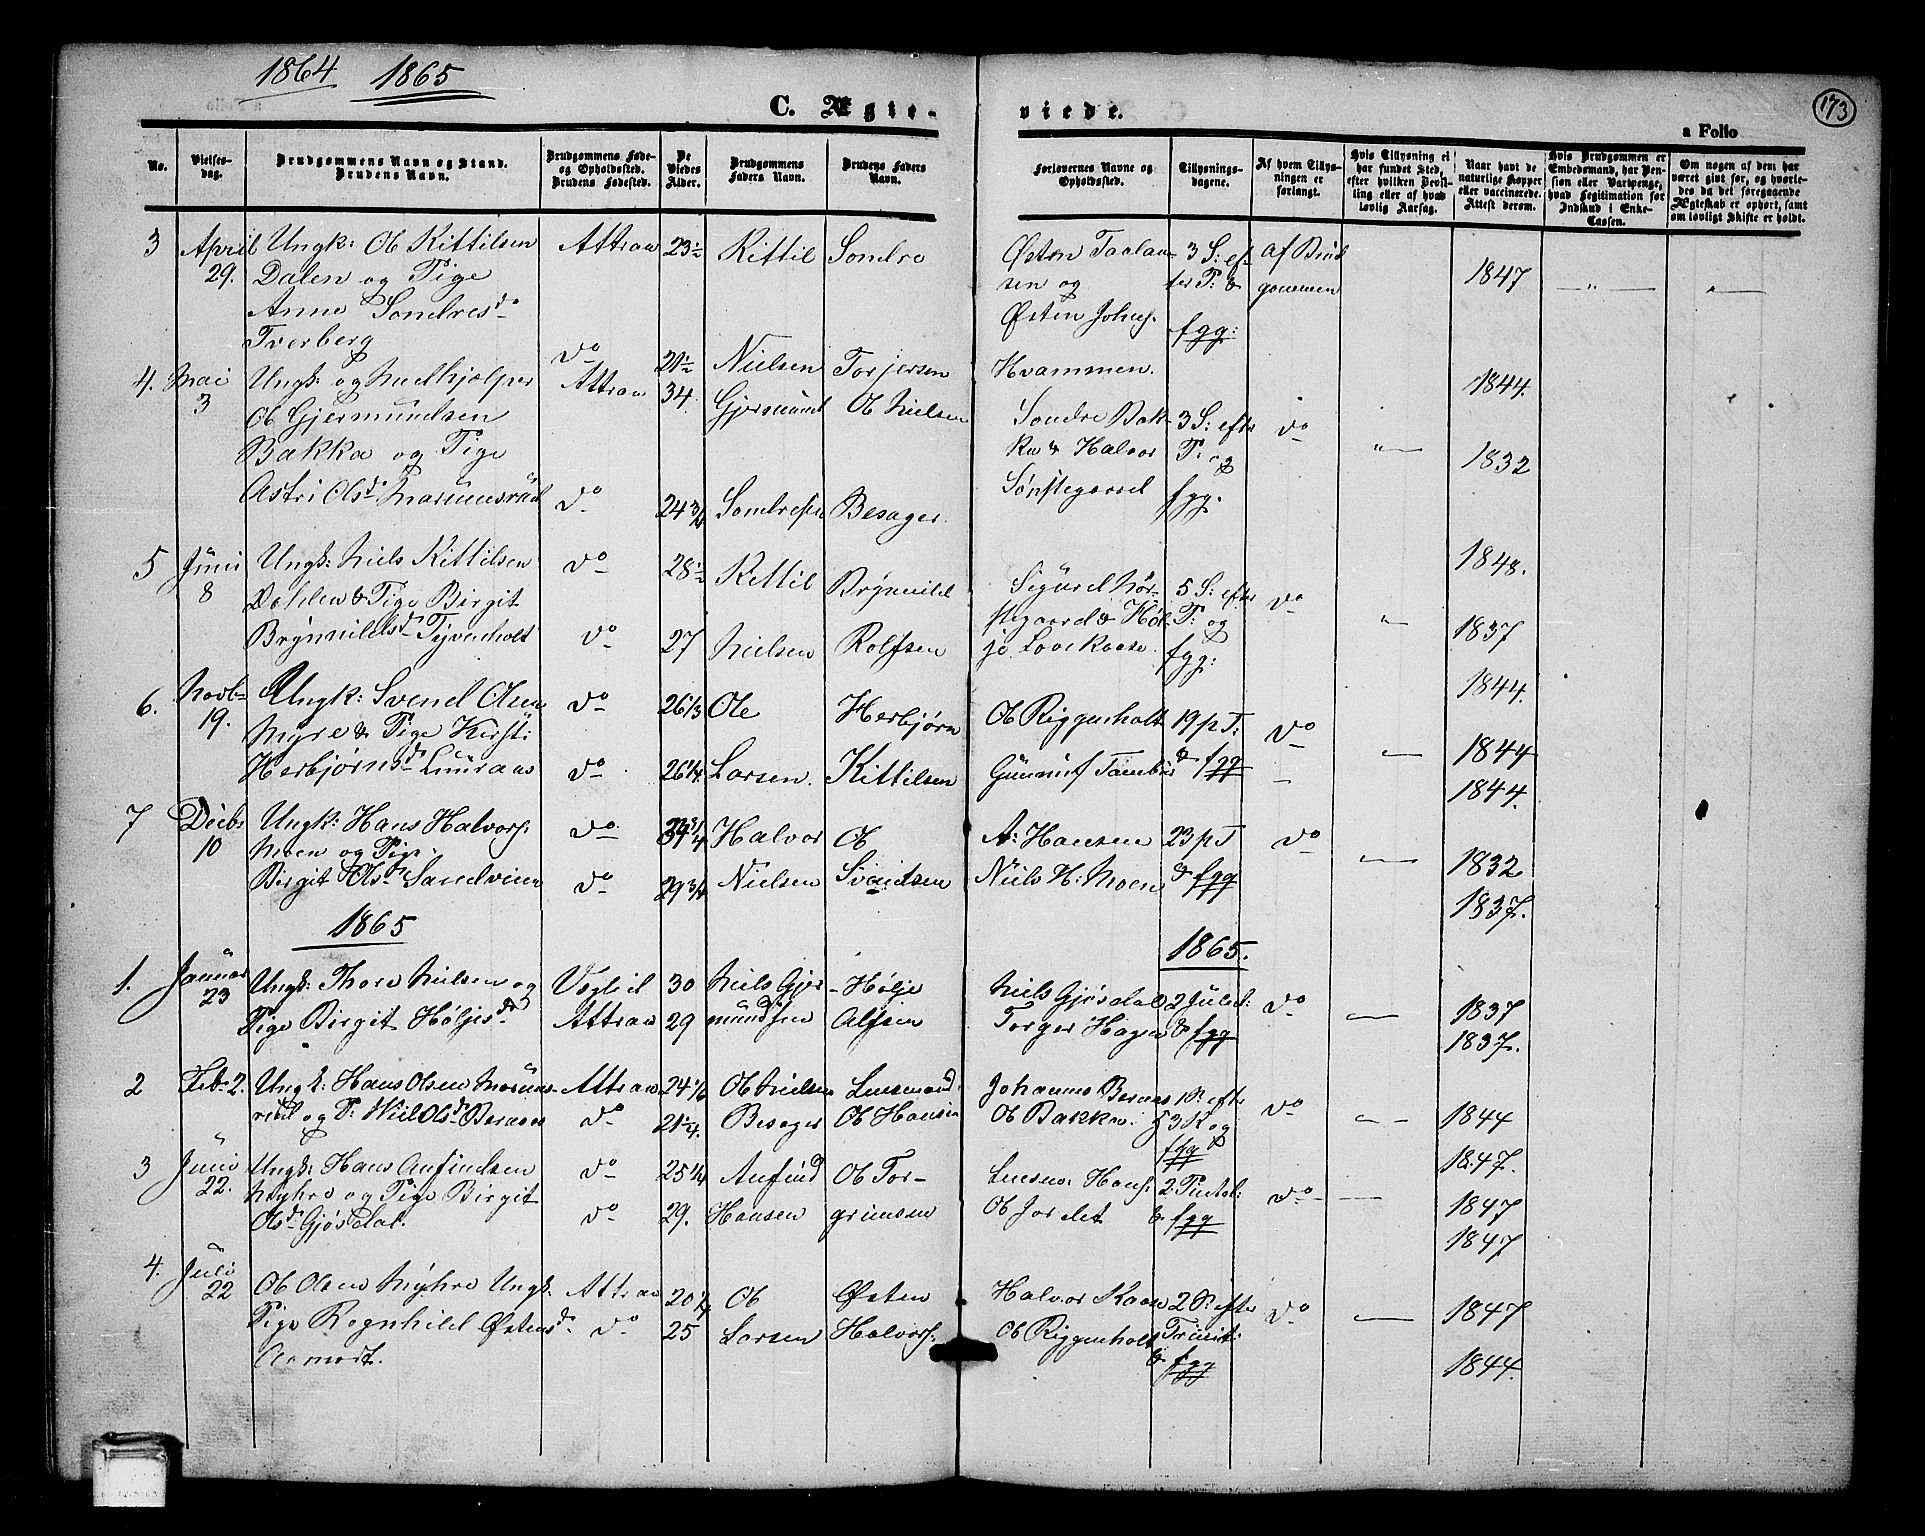 1864 1865
173
C. Ægte-
viede.
a Folio
No.
Vielses-
dag.
Brudgommens Navn og Stand.
Brudens Navn.
Brudgommens Føde-
og Opholdssted.
Brudens Fødested.
De
Viedes
Alder.
Brudgommens
Faders Navn.
Brudens Faders
Navn.
Forlovernes Navne og
Opholdssted.
Tillysnings-
dagene.
Af hvem Tillys-
ningen er
forlangt.
Hvis Tillysning ei
har fundet Sted,
efter hvilken Bevil-
ling eller af hvad
lovlig Aarsag.
Naar havt de
naturlige Kopper
eller vaccinerede.
Attest derom.
Hvis Brudgommen er
Embedsmand, har Pen-
sion eller Vartpenge,
hvad Legitimation for
Indskud i Enke-
Cassen.
Om nogen af dem har
været gift før, og hvorle-
des da det foregaaende
Ægteskab er ophørt, samt
om lovligt Skifte er holdt.
3 April Ungk: Ole Kittilsen Attraa 23½ Kittil Sondre
29. Dalen og Pige
Anne Sondresd.
Tverberg do 21½ Nielsen Torjersen
Østen Taalau- 3 S: ef- af Brud
sen og ter P: & gommen 1847
Østen Johns. fgg:
Hvammen. 1844.
4. Mai Ungk: og Medhjælper Attraa 34. Gjermund Ole Nielsen
3 Ole Gjermundsen
Bakka og Pige
Astri Olsd. do 24¾ Sondresen Besager.
Sondre Bak- 3 S: efter do
ka & Halvor P: og 1832
Sønstegaard fgg.
5 Juni Ungk: Niels Kittilsen do 28½ Kittil Brynnild
8 Dahlen & Pige Birgit
Brynnildsd. Tyvenholt do 27 Nielsen Rolfsen
1848.
Sigurd Nør- 5 S: efter do
stegaard & Høl- P: og 1837
je fgg:
6. Novb. Ungk: Svend Olsen do 26⅓ Ole Herbjørn
19. Myre & Pige Kirsti
Herbjørnsd. Luuraas do 26¼ Larsen. Kittilsen
Ole Riggenholt 19 p T: do 1844.
Gunnuf & fgg 1844
1844.
7 Decbr Ungk: Hans Halvors. do Halvor Ole
10 Moen og Pige
Birgit Olsd. Sandviken do 29¾ Nielsen Svendsen
A: Hansen 23 p T do 1832
Niels H: Moen & fgg 1837.
1865
1865.
1. Januar Ungk: Thore Nielsen og Veglid 30 Niels Gjer- Hølje
23 Pige Birgit Høljesd. Attraa 29 mundsen Alfsen
Niels Gjøsdal 2 Juled: do 1837
Torger Hagen & fgg 1837.
2 Feb. 2. Ungk: Hans Olsen Attraa 24⅙ Ole Nielsen
og P: Olsd. Beraas do 21¼. Besager Ole Hansen
Johannes Beraas efter do
Ole Bakka. og 1844
fgg 1847.
3 Juni Ungk: Hans Anfindsen do 25¼ Anfind Ole Tor-
22. Myhre og Pige Birgit
Olsd. Gjøsdal. do 29. Hansen grimsen
Hans. 2 Pintsd: do 1847
Ole Jordet & fgg 1847
4. Juli Ole Olsen Myhre Ungk. Attraa 20¼ Ole Østen
22 Pige Ragnhild Østensd. do 25 Larsen Halvors.
Aamodt.
Halvor Kaase 2 S: efter do 1847
Ole Riggenholt Trinit:
& fgg 1844.